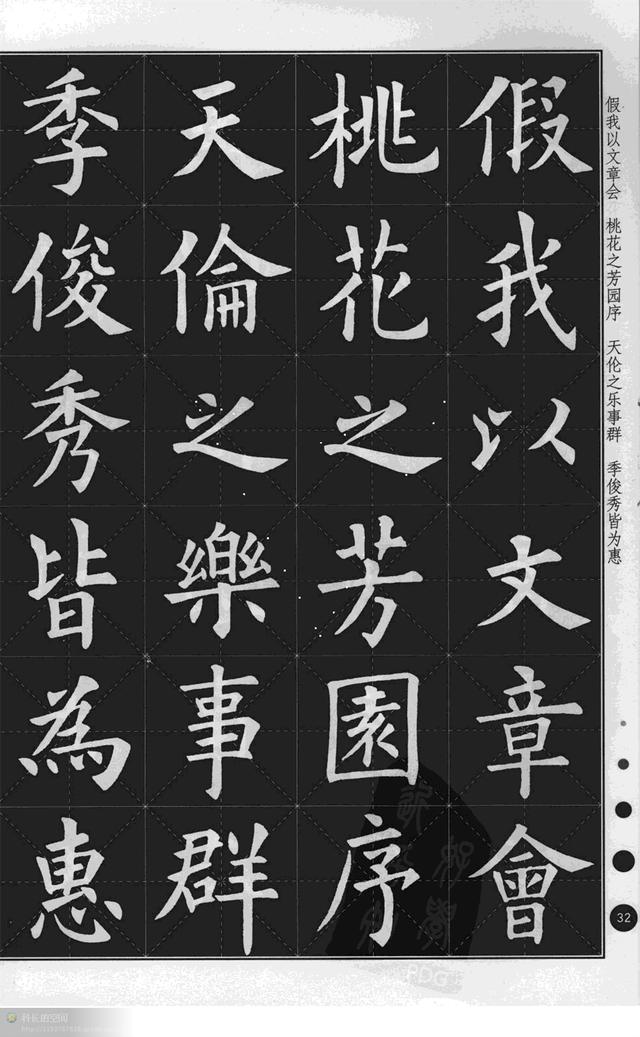 假我以文章會
桃花之芳園序
天倫之樂事群
季俊秀皆為惠
假我以文章会 桃花之芳园序 天伦之乐事群 季俊秀皆为惠
32
PDG
科长的空间